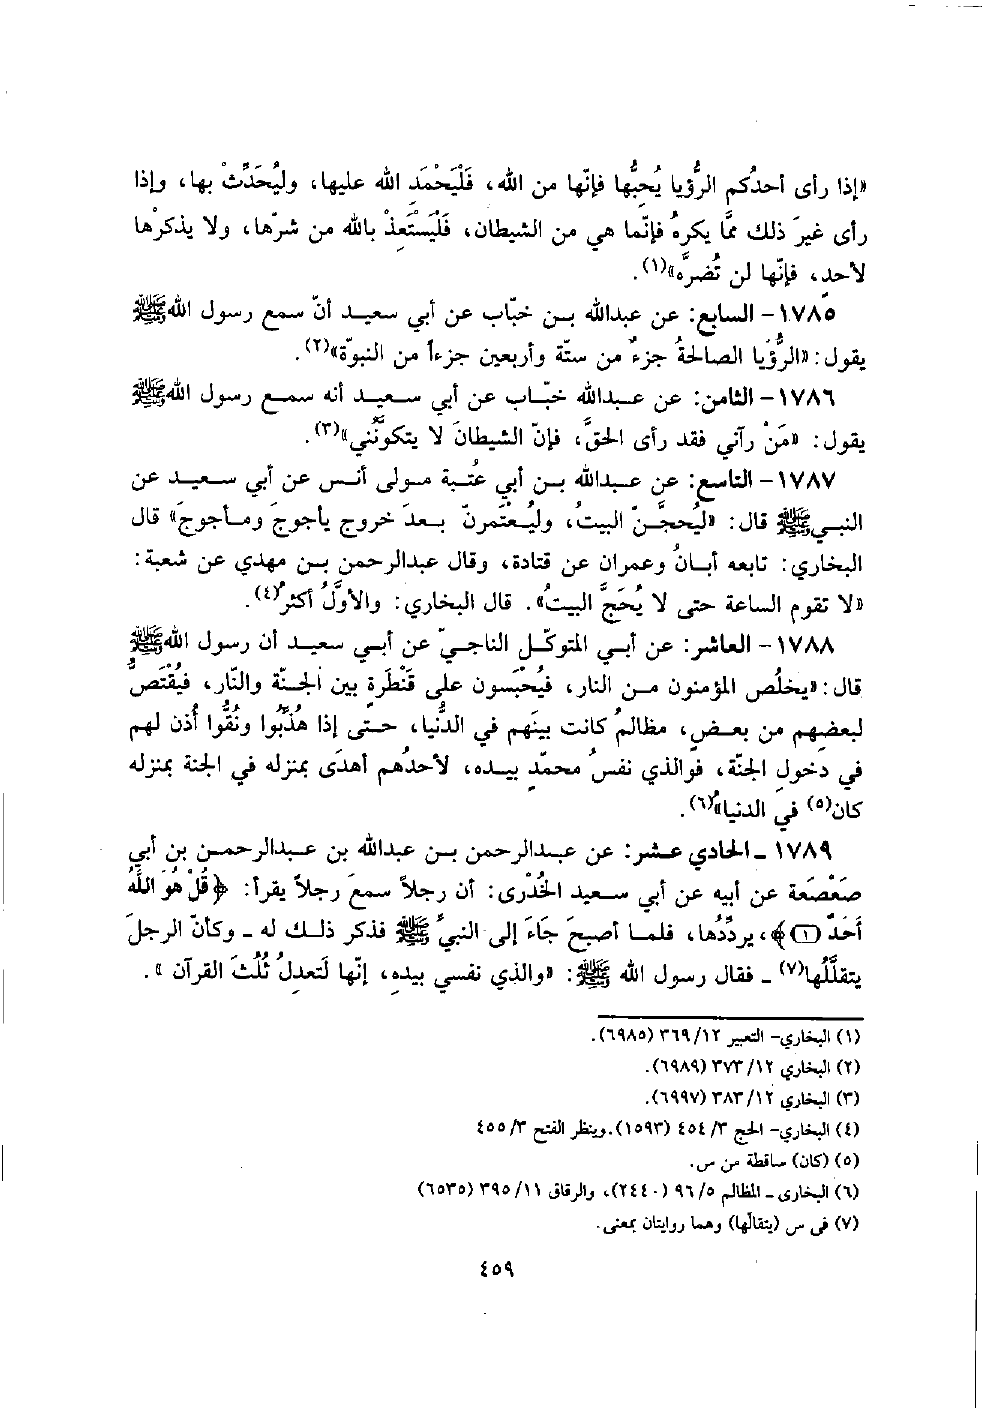 «إذا رأى أحدُكم الرُّؤيا يُحبُّها فإنّها من الله، فَلْيَحْمَدِ الله عليها، وليُحَدِّثْ بها، وإذا
رأى غيرَ ذلك ممَّا يكرهُ فإنّما هي من الشيطان، فَلْيَسْتَعِذْ بالله من شرّها، ولا يذكرْها
لأحدٍ، فإنّها لن تُضرَّه»(١).
١٧٨٥- السابع: عن عبدالله بن خبّاب عن أبي سعيد أنّ سمع رسول الله ﷺ
يقول: «الرُّؤيا الصالحةُ جزءٌ من ستّة وأربعين جزءاً من النبوّة»(٢).
١٧٨٦- الثامن: عن عبدالله خبّاب عن أبي سعيد أنه سمع رسول الله ﷺ
يقول: «مَنْ رآني فقد رأى الحقَّ، فإنّ الشيطانَ لا يتكوّنُني»(٣).
١٧٨٧- التاسع: عن عبدالله بن أبي عُتبة مولى أنس عن أبي سعيد عن
النبي ﷺ قال: «ليُحجَّنّ البيتُ، وليُعتَمرنّ بعدَ خروج يأجوجَ ومأجوجَ» قال
البخاري: تابعه أبانُ وعمران عن قتادة، وقال عبدالرحمن بن مهدي عن شعبة:
«لا تقوم الساعة حتى لا يُحَجَّ البيتُ». قال البخاري: والأوّلُ أكثر(٤).
١٧٨٨- العاشر: عن أبي المتوكّل الناجيّ عن أبي سعيد أن رسول الله ﷺ
قال: «يخلُص المؤمنون من النار، فيُحْبَسون على قَنْطَرةٍ بين الجنّة والنّار، فيُقْتَصُّ
لبعضِهم من بعضٍ، مظالمُ كانت بينَهم في الدُّنيا، حتى إذا هُذِّبوا ونُقُّوا أُذن لهم
في دخول الجنّة، فوالذي نفسُ محمّدٍ بيده، لأحدُهم أهدَى بمنزله في الجنة بمنزله
كان(٥) في الدنيا»(٦).
١٧٨٩ ـ الحادي عشر: عن عبدالرحمن بن عبدالله بن عبدالرحمن بن أبي
صَعْصَعة عن أبيه عن أبي سعيد الخُدْرى: أن رجلاً سمع رجلاً يقرأ: ﴿قُلْ هُوَ اللَّهُ
أَحَدٌ (١)﴾، يردِّدُها، فلما أصبحَ جَاءَ إلى النبيِّ ﷺ فذكر ذلك له ـ وكأنّ الرجلَ
يتقلَّلُها(٧) ـ فقال رسول الله ﷺ: «والذي نفسي بيده، إنّها لَتعدلُ ثُلُثَ القرآن ».
(١) البخاري- التعبير ١٢/ ٣٦٩ (٦٩٨٥).
(٢) البخاري ١٢/ ٣٧٣ (٦٩٨٩).
(٣) البخاري ١٢/ ٣٨٣ (٦٩٩٧).
(٤) البخاري- الحج ٣/ ٤٥٤ (١٥٩٣).وينظر الفتح ٣/ ٤٥٥
(٥) (كان) ساقطة من س.
(٦) البخارى ـ المظالم ٥/ ٩٦ (٢٤٤٠)، والرقاق ١١/ ٣٩٥ (٦٥٣٥)
(٧) فى س (يتقالّها) وهما روايتان بمعنى.
٤٥٩